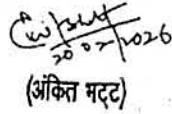 20/02/2026
(अंकित भट्ट)